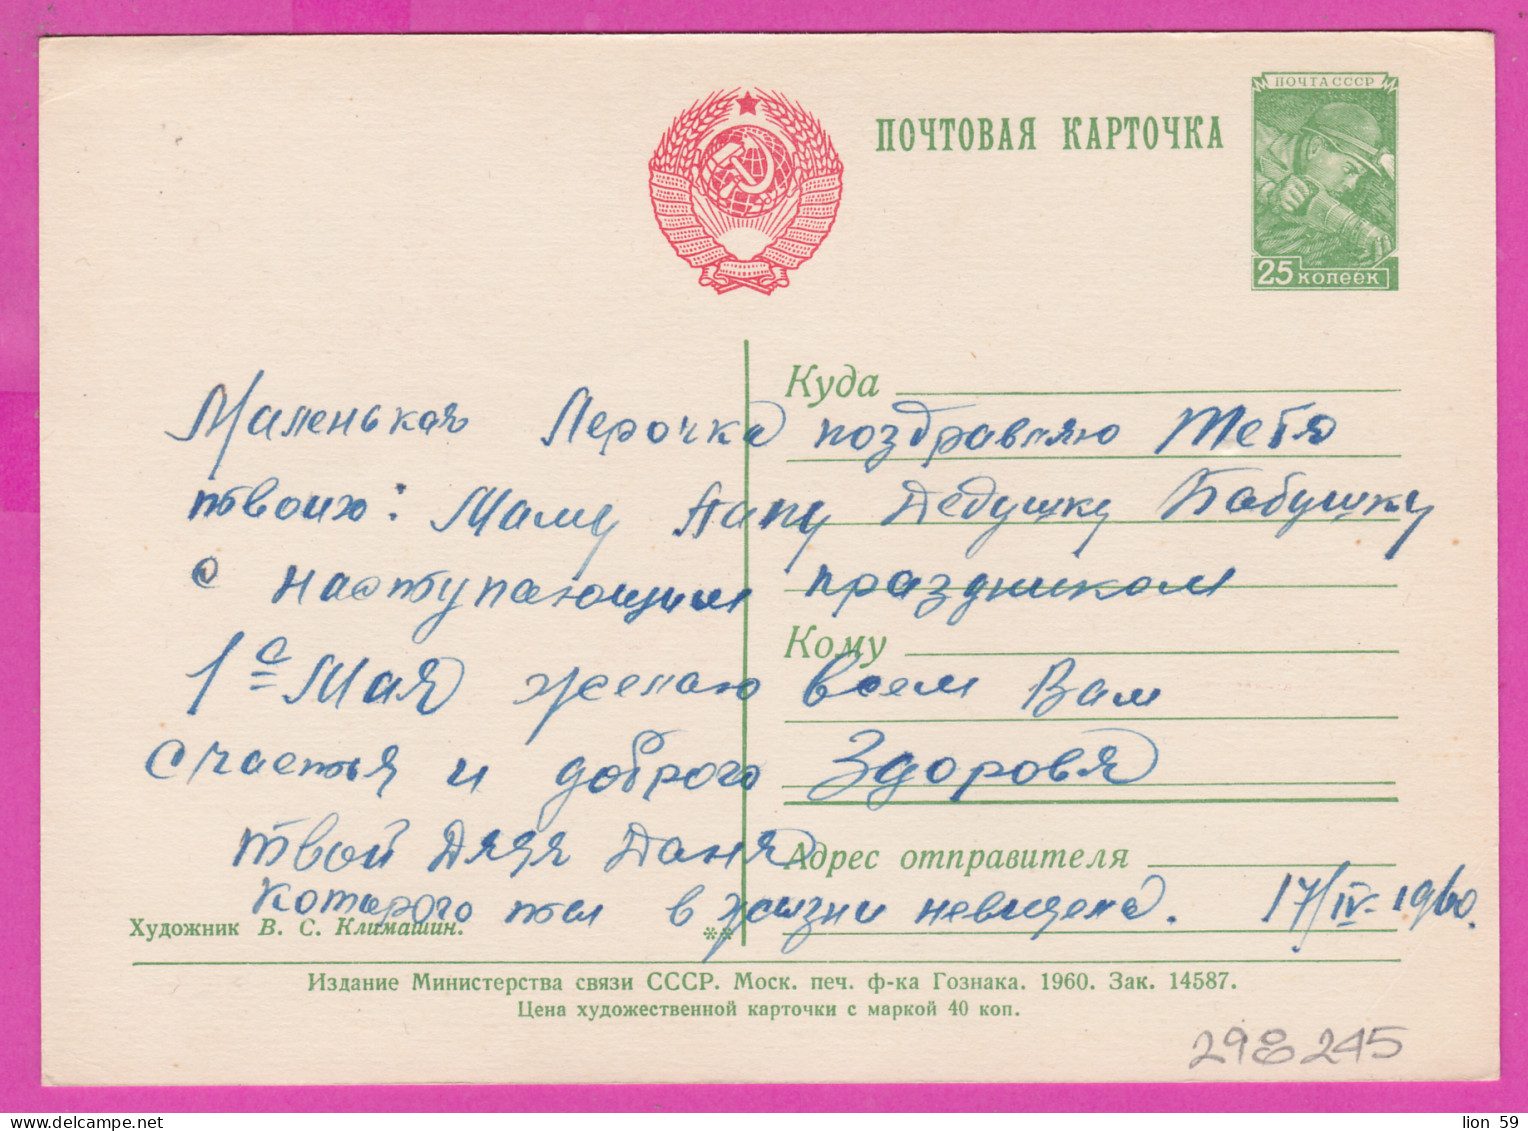 ПОЧТА СССР
ПОЧТОВАЯ КАРТОЧКА
25 КОПЕЕК
Куда
Маленькая Лерочка поздравляю тебя
твоих: Маму Папу Дедушку Бабушку
с наступающим праздником
Кому
1е Мая желаю всем Вам
счастья и доброго Здоровя
твой Дядя Даня
Адрес отправителя
которого ты в жизни невидела. 17/IV-1960.
Художник В. С. Климашин.
**
Издание Министерства связи СССР. Моск. печ. ф-ка Гознака. 1960. Зак. 14587.
Цена художественной карточки с маркой 40 коп.
298245
lion 59